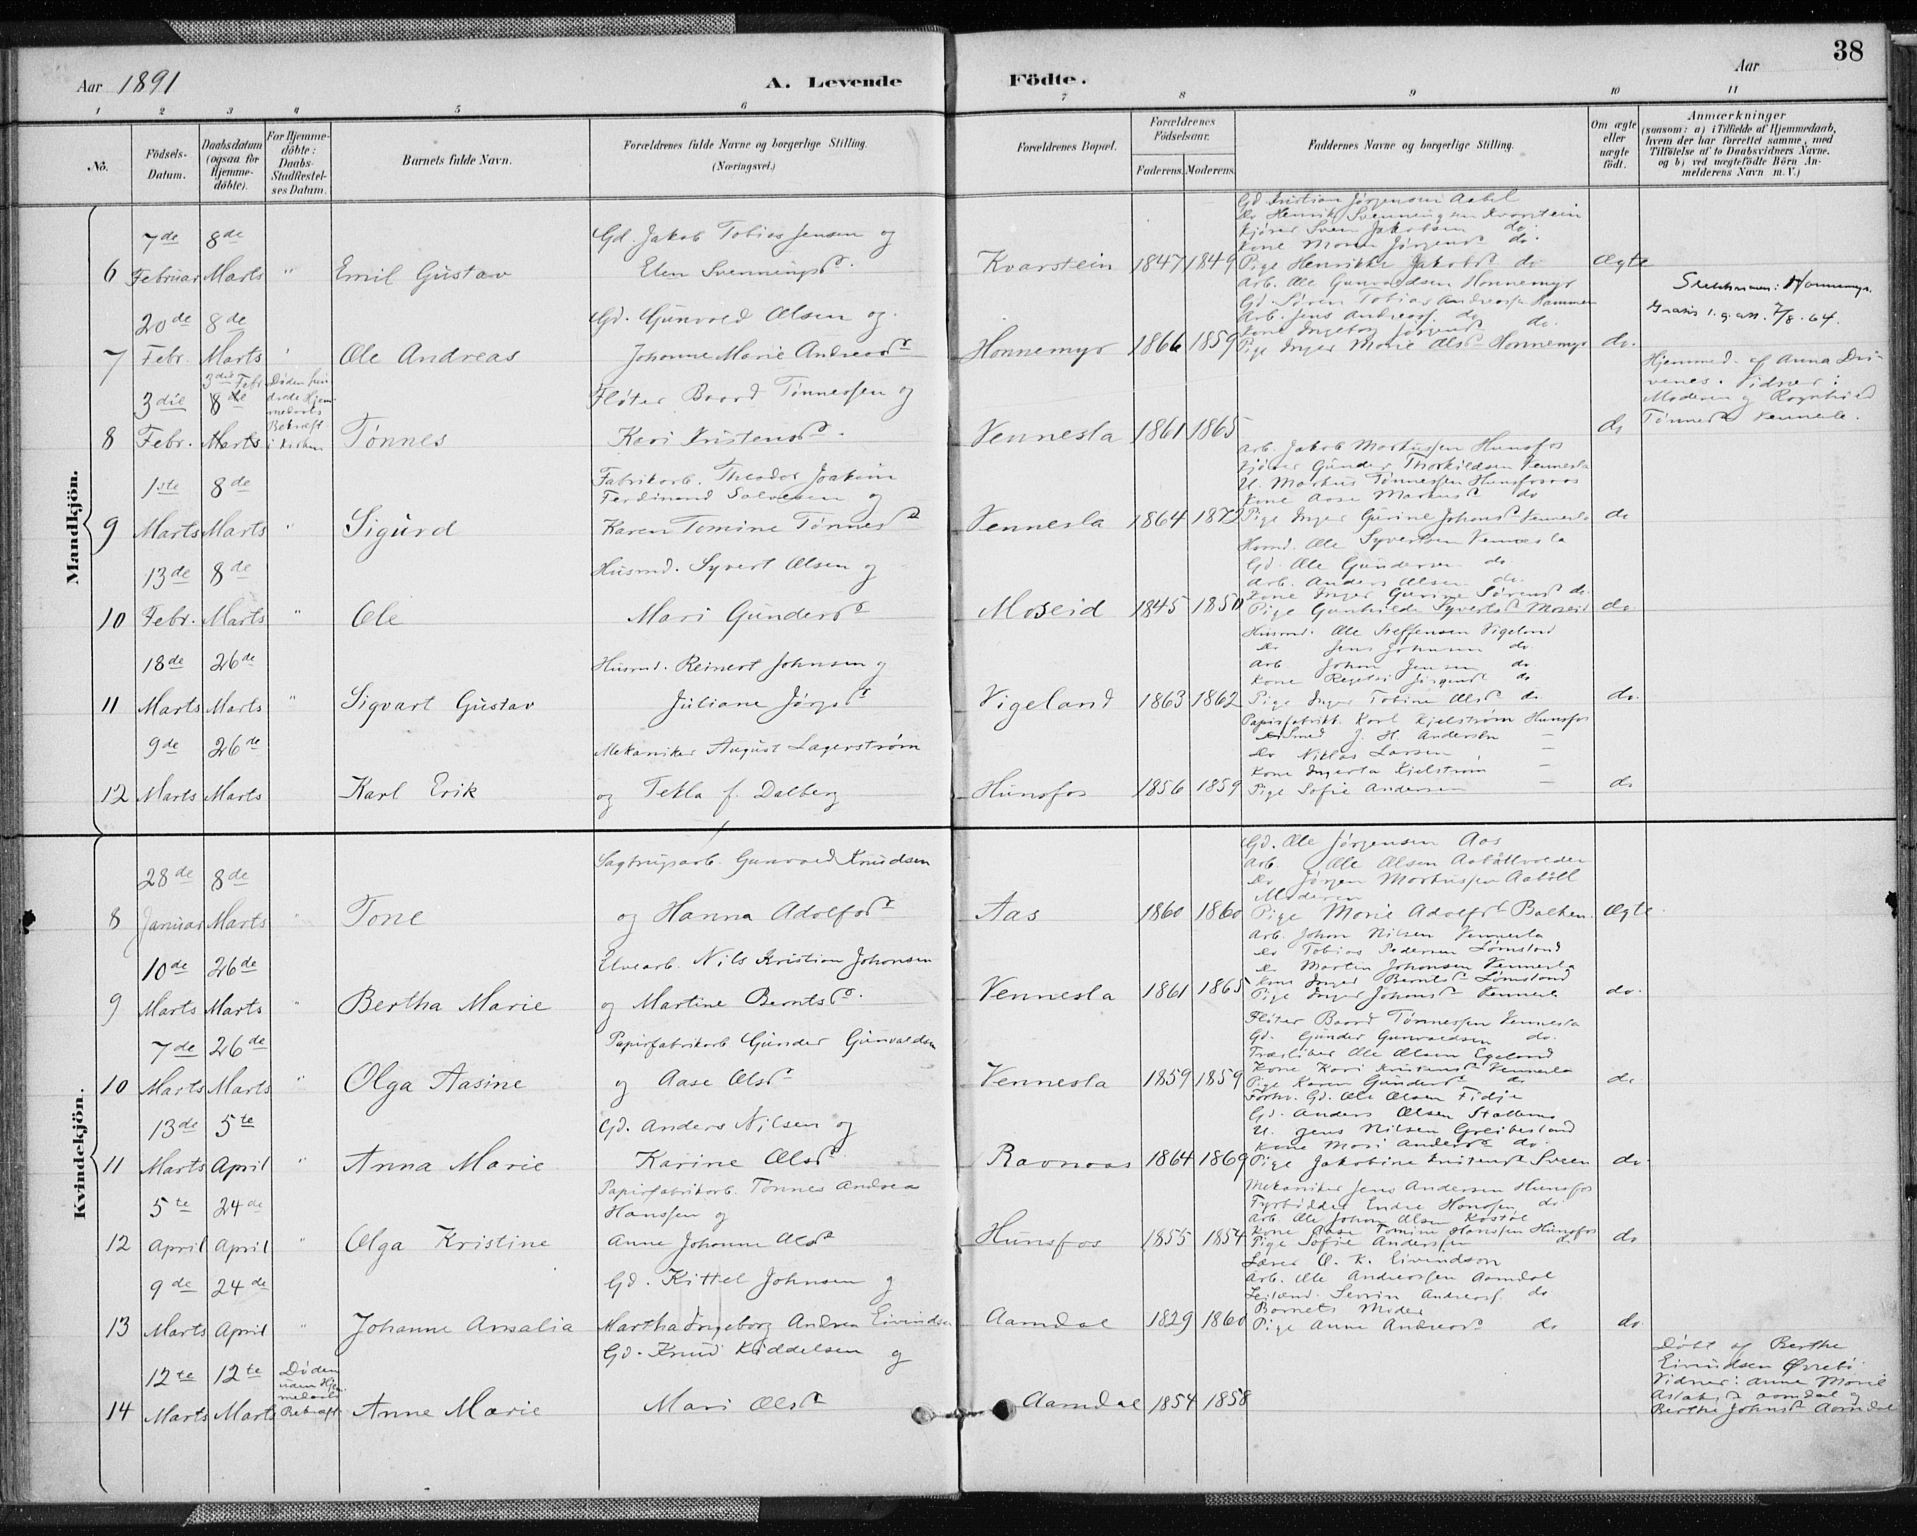 38
Aar 1891
A. Levende
Födte.
Aar
1 2 3 4 5 6 7 8 9 10 11
No.
Födsels-
Datum.
Daabsdatum
(ogsaa for
Hjemme-
döbte).
For Hjemme-
döbte:
Daabs-
Stadfæstel-
ses Datum.
Barnets fulde Navn.
Forældrenes fulde Navne og borgerlige Stilling.
(Næringsvei.)
Forældrenes Bopæl.
Forældrenes
Födselsaar.
Faderens. Moderens.
Faddernes Navne og borgerlige Stilling.
Om ægte
eller
uægte
födt.
Anmærkninger
(saasom: a) i Tilfælde af Hjemmedaab,
hvem der har forrettet samme, med
Tilföielse af to Daabsvidners Navne,
og b) ved uægtefödte Börn An-
melderens Navn m. V.)
Mandkjön.
7de 8de
6 Februar Marts " Emil Gustav
Gd. Jakob Tobias Jensen og
Elen Svenningsd.
Kvarstein 1847 1849
Gd Kristian Jörgensen Aabel
Do Henrik Svenningsen Kvarstein
Kjörer Sven Jakobsen do.
Kone Maren Jörgensd. do.
Pige Henrikke Jakobsd. do.
Ægte
20de 8de
7 Febr. Marts " Ole Andreas
Gd. Gunvold Olsen og
Johanne Marie Andreasd.
Honnemyr 1866 1859
Arb. Ole Gunvaldsen Honnemyr
Gd. Sören Tobias Andreassen Hammen
Arb. Jens Andreass. do.
Kone Ingeborg Jörgensd. do.
Pige Inger Marie Olsd. Honnemyr
do.
Slektsnavn: Honnemyr.
7/8.64.
3die Febr
3die 8de
8 Febr. Marts
Döden hin-
drede Hjem-
medaabs
Bekræft
i Kirken
Tønnes
Fløter Baard Tønnessen og
Kari Kristensd.
Vennesla 1861 1865
do
Hjemmed. af Anna Dri-
venes. Vidner:
Moderen og Ragnhild
Tønnesd. Vennesla.
1ste 8de
9 Marts Marts " Sigurd
Fabrikarb. Theodor Joakim
Ferdinand Salvesen og
Karen Tomine Tønnesd.
Vennesla 1864 1872
Arb. Jakob Markussen Hunsfos
Kjörer Gunder Thorkildsen Vennesla
U. Markus Tønnessen Hunsfosaas
Kone Aase Markusd. do
Pige Inger Gurine Johansd. Vennesla
do
13de 8de
10 Febr. Marts " Ole
Husmd. Syvert Olsen og
Mari Gundersd.
Moseid 1845 1850
Husmd. Ole Syvertsen Vennesla
Gd. Ole Gundersen do.
Arb. Anders Olsen do.
Kone Inger Gurine Sörensd. do.
Pige Gunhilde Syvertsd. Moseid
do.
18de 26de
11 Marts Marts " Sigvart Gustav
Husmd. Reinert Johnsen og
Juliane Jørgsd.
Vigeland 1863 1862
Husmd. Ole Steffensen Vigeland
Do Jens Johnsen do
Arb Johan Jensen do
Kone Jørgensd. do
Pige Inger Tobine Olsd. do.
do.
9de 26de
12 Marts Marts Karl Erik
Mekaniker August Lagerstrøm
og Tekla f. Dalberg
Hunsfos 1856 1859
Papirfabrikt. Karl Kjelstrøm Hunsfos
J. H. Andersen —
Do Niklas Larsen —
Kone Kjelstrøm —
Pige Sofie Andersen —
do
Kvindekjön.
28de 8de
8 Januar Marts " Tone
Sagbrugsarb. Gunvald Knudsen
og Hanna Adolfsd.
Aas 1860 1860
Gd. Ole Jørgensen Aas
Arb. Ole Olsen
Do Jørgen Markussen
Moderen
Pige Marie Adolfsd. Balken.
Ægte
10de 26de
9 Marts Marts " Bertha Marie
Elvearb. Nils Kristian Johansen
og Martine Berntsd.
Vennesla 1861 1865
Arb. Johan Nilsen Vennesla
Do Tobias Pedersen Lømsland
Do Martin Johansen Vennesla
Kone Inger Berntsd. Lømsland
Pige Inger Johansd. Vennesla
do.
7de 26de
10 Marts Marts " Olga Aasine
Papirfabrikarb Gunder Gunvaldsen
og Aase Olsd.
Vennesla 1859 1859
Fløter Baard Tønnessen Vennesla
Gd. Gunder Gunvaldsen do.
Træsliber Ole Olsen Egeland
Kone Kari Kristensd. Vennesla
Pige Karen Gundersd. do
do
13de 5te
11 Marts April " Anna Marie
Gd. Anders Nilsen og
Karine Olsd.
Ravnaas 1864 1869
Forhv. Gd. Ole Olsen Fidje
Gd. Anders Olsen Stallemo
U. Jens Nilsen Greibesland
Kone Mari Andersd. do.
Pige Jakobine Knutsend.
do
5te 24de
12 April April " Olga Kristine
Papirfabrikarb. Tønnes Andrea
Hanssen og
Anne Johanne Olsd.
Hunsfos 1855 1854
Mekaniker Jens Andersen Hunsfos
Fyrbödder Endre Hanssen do
Arb. Ole Johan Olsen Kostöl
Kone Aase Tomine Hanssen Hunsfos
Pige Sofie Anderssen do
do
9de 24de
13 Marts April " Johanne Amalia
Gd. Kittel Johnsen og
Martha Ingeborg Andrea Eivindsen
Aamdal 1829 1860
Lærer O. K. Eivindson
Arb. Ole Andreassen Aamdal
Leilænd. Severin Andreass. do
Barnets Moder
Pige Anne Andreasd. do
do.
12te 12te
14 Marts Marts
Döden
uden Hjem-
medaabs
Bekræft.
Anne Marie
Gd. Knud Kiddelsen og
Mari Olsd.
Aamdal 1854 1858
Döbt af Berthe
Eivindsen Øvrebö.
Vidner: Anne Marie
Aslaksd. Aamdal og
Berthe Johnsd. Aamdal